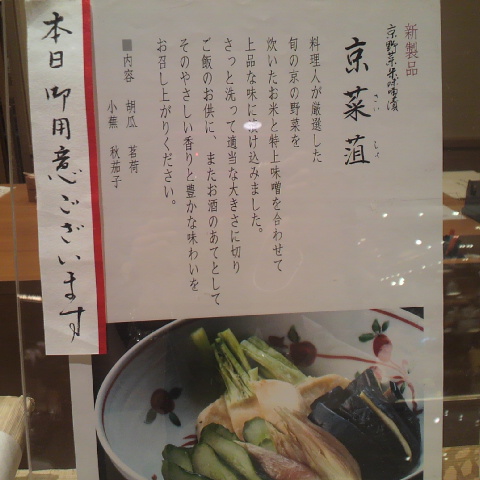 新製品
京野菜米味噌漬
京菜菹
さい しょ
料理人が厳選した
旬の京の野菜を
炊いたお米と特上味噌を合わせて
上品な味に漬け込みました。
さっと洗って適当な大きさに切り
ご飯のお供に、またお酒のあてとして
そのやさしい香りと豊かな味わいを
お召し上がりください。
■内容 胡瓜 茗荷
小蕪 秋茄子
本日御用意ございます